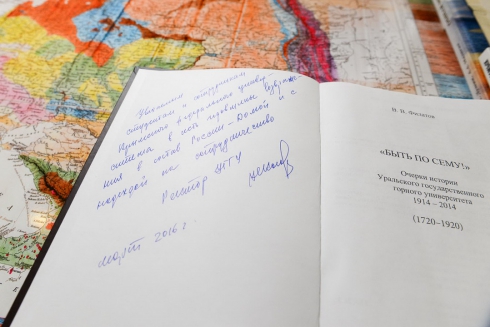 Уважаемым
студентам и сотрудникам
Крымского федерального универ-
ситета в честь годовщины возвраще-
ния в состав России – Домой и с
надеждой на сотрудничество
Ректор
март 2016 г.
В. В. Филатов
«БЫТЬ ПО СЕМУ!»
Очерки истории
Уральского государственного
горного университета
1914 – 2014
(1720–1920)